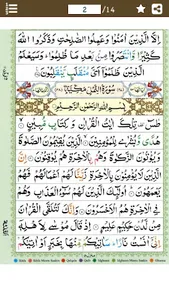 2 /14
اِلَّا الَّذِيْنَ اٰمَنُوْا وَعَمِلُوا الصّٰلِحٰتِ وَذَكَرُوا اللّٰهَ
كَثِيْرًا وَّانْتَصَرُوْا مِنْۢ بَعْدِ مَا ظُلِمُوْا ۗ وَسَيَعْلَمُ
الَّذِيْنَ ظَلَمُوْٓا اَيَّ مُنْقَلَبٍ يَّنْقَلِبُوْنَ
سُوْرَةُ النَّمْلِ مَكِّيَّةٌ
بِسْمِ اللّٰهِ الرَّحْمٰنِ الرَّحِيْمِ
طٰسٓ ۚ تِلْكَ اٰيٰتُ الْقُرْاٰنِ وَكِتَابٍ مُّبِيْنٍ
هُدًى وَّبُشْرٰى لِلْمُؤْمِنِيْنَ الَّذِيْنَ يُقِيْمُوْنَ
الصَّلٰوةَ وَيُؤْتُوْنَ الزَّكٰوةَ وَهُمْ بِالْاٰخِرَةِ هُمْ يُوْقِنُوْنَ
اِنَّ الَّذِيْنَ لَا يُؤْمِنُوْنَ بِالْاٰخِرَةِ زَيَّنَّا لَهُمْ اَعْمَالَهُمْ
فَهُمْ يَعْمَهُوْنَ اُولٰٓئِكَ الَّذِيْنَ لَهُمْ سُوْٓءُ الْعَذَابِ وَهُمْ
فِي الْاٰخِرَةِ هُمُ الْاَخْسَرُوْنَ وَاِنَّكَ لَتُلَقَّى الْقُرْاٰنَ
مِنْ لَّدُنْ حَكِيْمٍ عَلِيْمٍ اِذْ قَالَ مُوْسٰى لِاَهْلِهٖٓ
اِنِّيْٓ اٰنَسْتُ نَارًا ۗ سَاٰتِيْكُمْ مِّنْهَا بِخَبَرٍ اَوْ اٰتِيْكُمْ